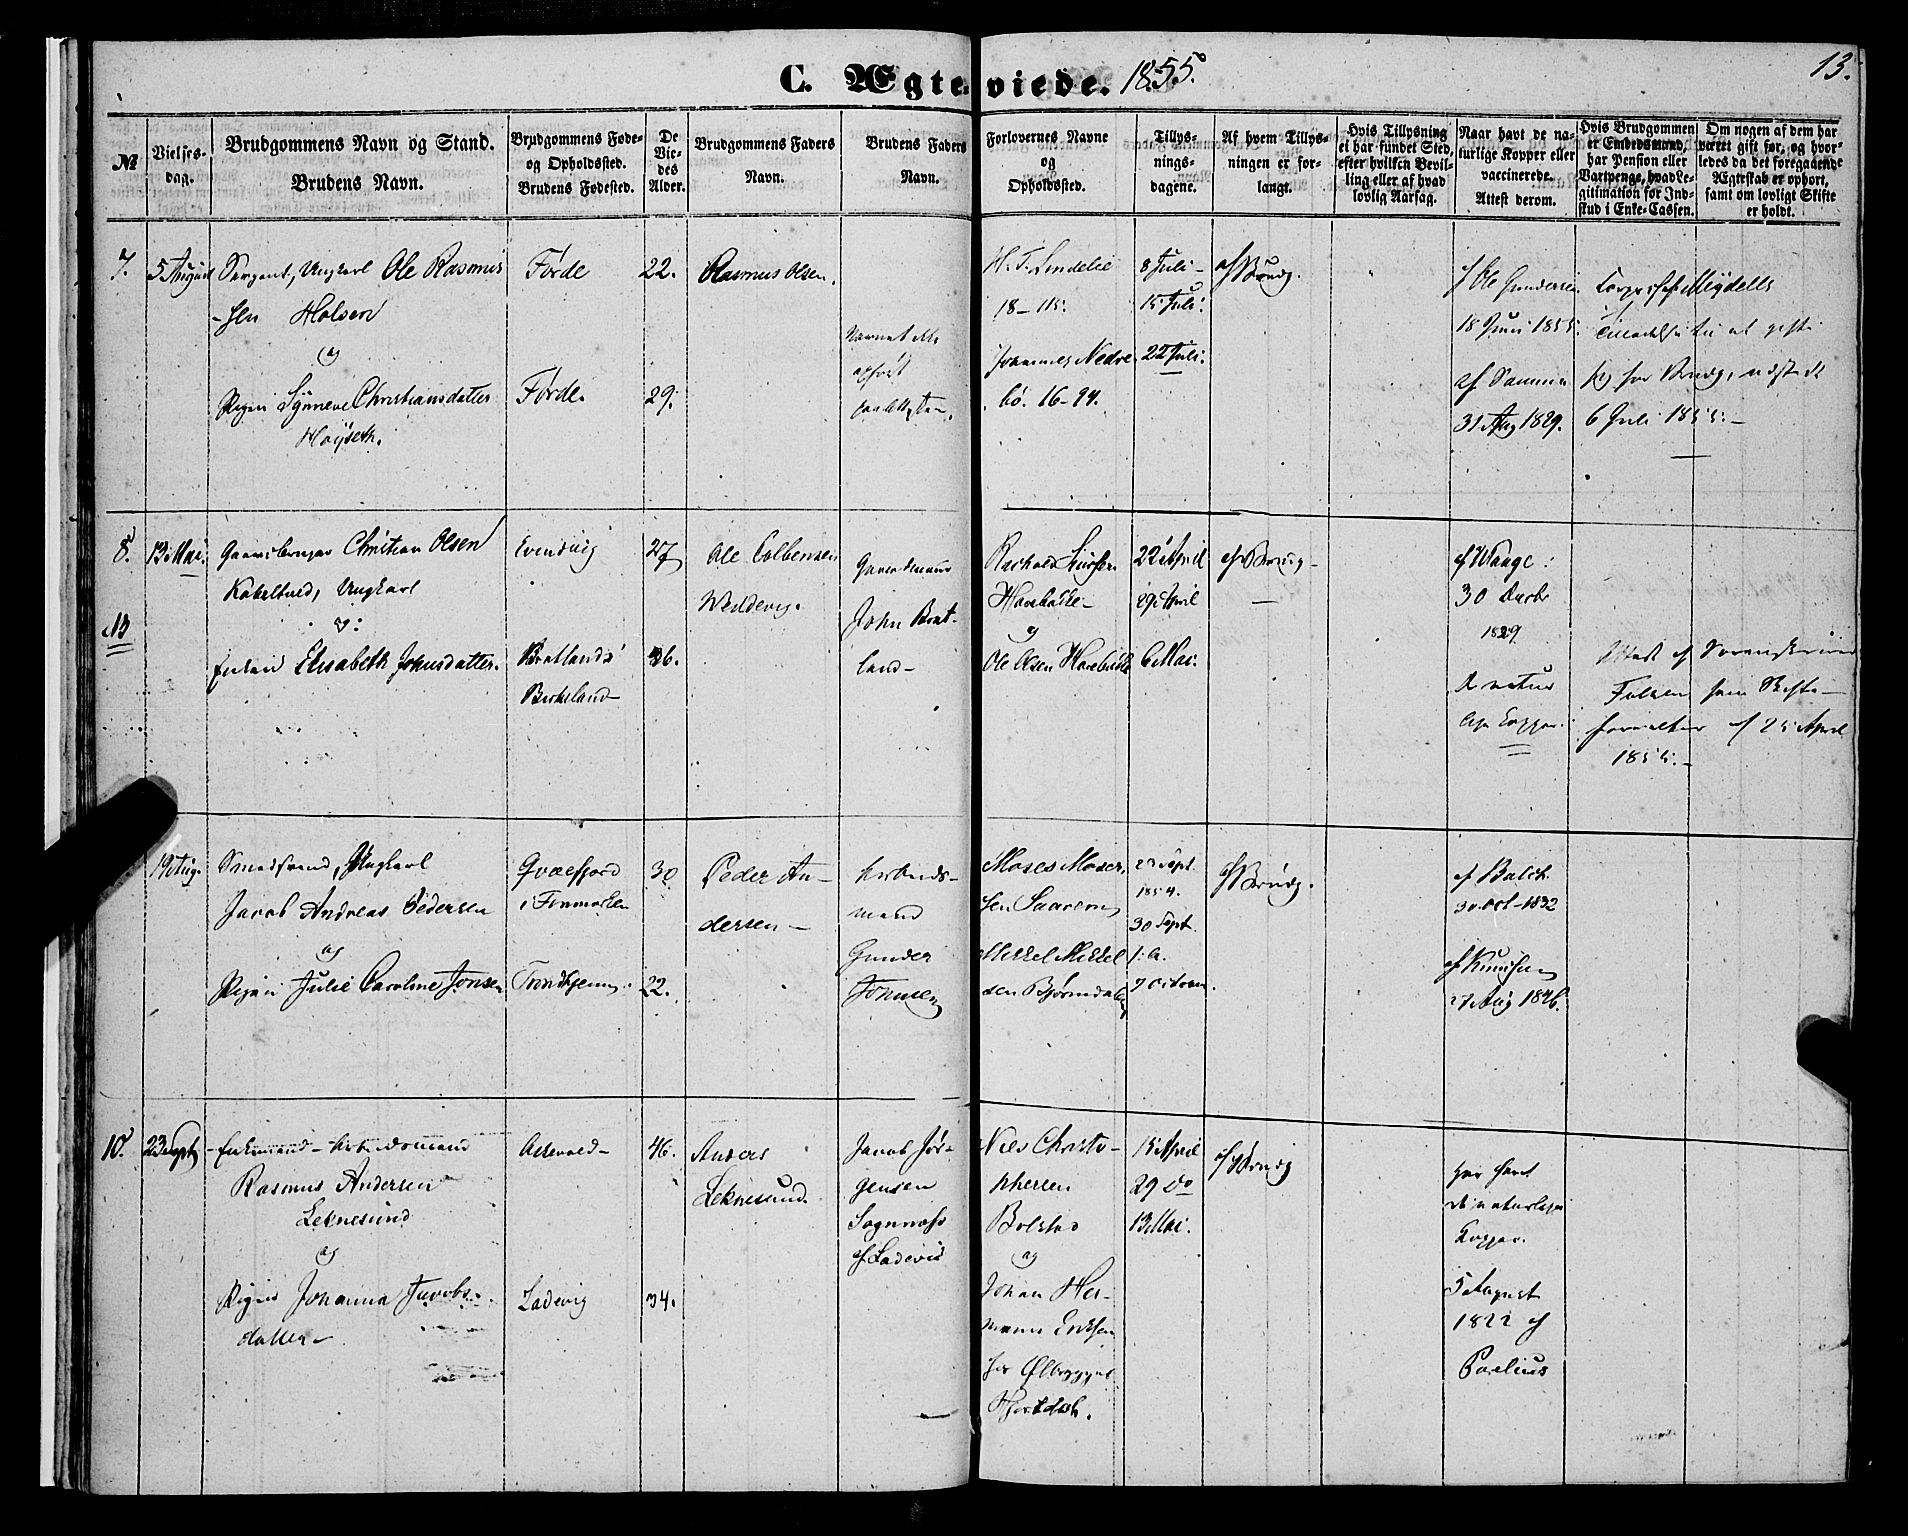 C. Ægteviede. 1855.
13.
№
Vielses-
dag.
Brudgommens Navn og Stand.
Brudens Navn.
Brudgommens Føde-
og Opholdssted.
Brudens Fødested.
De
Vie-
des
Alder.
Brudgommens Faders
Navn.
Brudens Faders
Navn.
Forlovernes Navne
og
Opholdssted.
Tillys-
nings-
dagene.
Af hvem Tillys-
ningen er for-
langt.
Hvis Tillysning
ei har fundet Sted,
efter hvilken Bevil-
ling eller af hvad
lovlig Aarsag.
Naar havt de na-
turlige Kopper eller
vaccinerede.
Attest derom.
Hvis Brudgommen
er Embedsmand,
har Pension eller
Vartpenge, hvad Le-
gitimation for Ind-
skud i Enke-Cassen.
Om nogen af dem har
været gift før, og hvor-
ledes da det foregaaende
Ægteskab er ophørt,
samt om lovligt Skifte
er holdt.
7.
5 August
Sergent, Ungkarl Ole Rasmus
-sen Holsen
og
Pigen Synneve Christiansdatter
Høyseth.
Førde
Førde.
22.
29.
Rasmus Olsen.
Navnet ikke
opført
18-115.
Johannes Nedre-
bø. 16-94.
8 Juli-
15 Juli.
22 Juli.
af Brudg.
af Ole Gundersen
18 Juni 1855.
af Samme
31 Aug 1829.
6 Juli 1855.-
8.
13 Mai.
Gaardbruger Christian Olsen
Kobeltved, Ungkarl
og
Enken Elisabeth Johnsdatter.
Evendvig
Birkeland-
27
36.
Ole Colbensen
Gaardmand
John Brat-
land-
Ole Olsen
22 April
29 April
6 Mai.
af Brudg-
af Waage:
30 Decbr
1829
De natur
lige Kopper.
Attest af Sorenskriver
Falsen som Skifte-
forvalter af 25 April
1855.-
19 Aug.
Smedsvend, Ungkarl
Jacob Andreas Pedersen
og
Pigen Julie Caroline Jonsen
Qvæfjord
i Finmarken
Trondhjem.
30
22.
Peder An-
dersen-
Arbeids-
mand
Gunder
Johnsen
Moses Moses-
sen
Mikkel Mikkel
sen Bjørndalen
23 Sept.
1854.
30 Sept.
7 October.
af Brudg.
af Balch
30 Oct-1832
af Knudsen
27 Aug 1846.
10.
23 Sept
-Enkemand-Arbeidsmand
Rasmus Andersen
Leknesund
og
Pigen Johanna Jacobs-
datter-
Askevold-
Ladevig
46.
34.
Anders
Leknesund.
Jacob Jør-
gensen
Sognnæs
af Ladevig
Niels Christo-
phersen
Bolstad
og
Johan Her-
mann Eriksen
15 April
29 do
13 Mai.
af Brudg
har havt
de naturlige
Kopper.
5 August
1822 af
Parelius